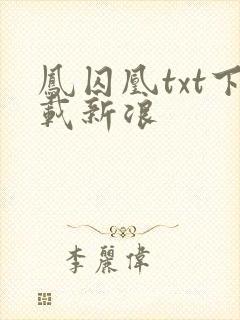 鳳囚凰txt下
載新浪
李麗偉